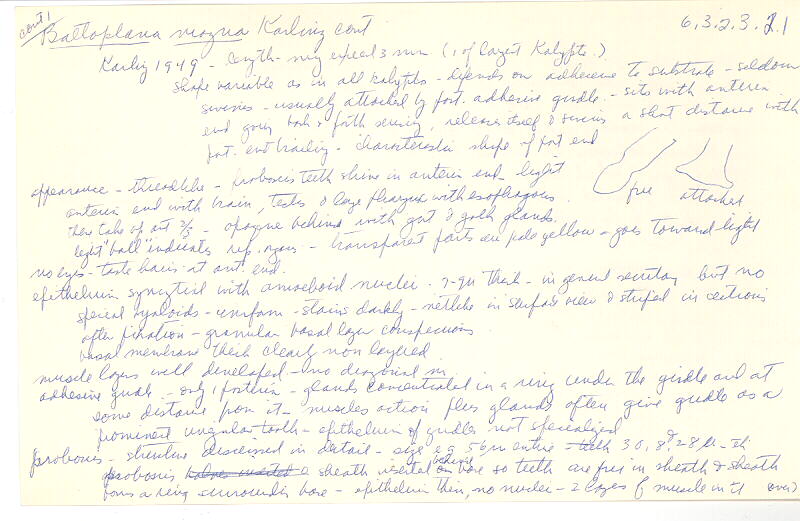 cont 1
Baltoplana magna Karling cont 6.3.2.3.2.1
Karling 1949 - length - may exceed 3 mm (1 of largest Kalypto.)
shape variable as in all kalypts - depends on adherence to substrate - seldom
swims - usually attached by post. adhesive girdle - sits with anterior
end going back & forth , releases itself & swims a short distance with
post. end trailing - characteristic shape of post end
free attached
appearance - threadlike - proboscis teeth shine in anterior end - light
anterior end with brain, testes & large pharynx with esophagous
these take up ant 2/3 - opaque behind with gut & yolk glands.
light "ball" indicates rep. organs - transparent parts are pale yellow - goes toward light
no eyes - taste hairs at ant. end.
epithelium syncytial with amoeboid nuclei - 7-9µ thick - in general secretory but no
special hyaloids - uniform - stains darkly - netlike in surface view & striped in sections
after fixation - granular basal layer conspicuous
basal membrane thick clearly non layered
muscle layers well developed - no diagonal m
adhesive girdle - only 1 posterior - glands concentrated in a ring under the girdle and at
some distance from it - muscles action plus glands often give girdle as a
prominent ungular tooth - epithelium of girdle not specialized
proboscis - structure discussed in detail - size e.g. 56µ entire - teeth 30, 8, & 28µ -
proboscis halves inserted a sheath inserted behind base so teeth are free in sheath & sheath
forms a ring surroundin base - epithelium thin, no nuclei - 2 layers of muscle in it over)